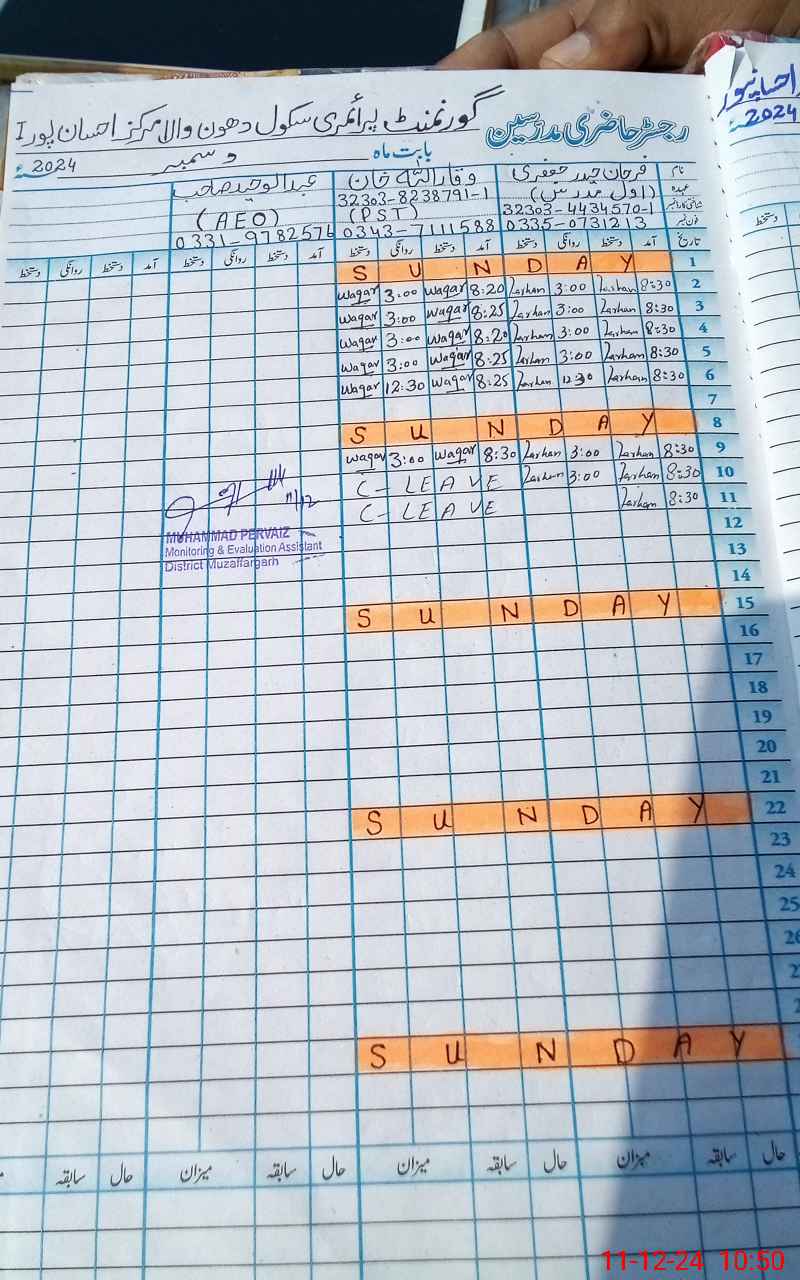 گورنمنٹ پرائمری سکول دھون والا مرکز احسان پور I
رجسٹر حاضری مدرسین
بابت ماہ دسمبر 2024ء
احسان پور
2024ء
نام فرحان حیدر جعفری وقار اللہ خان عبدالوحید صاحب
عہدہ (اول مدرس) (PST) (AEO)
شناختی کارڈ نمبر 32303-4434570-1 32303-8238791-1
فون نمبر 0335-0731213 0343-7111588 0331-9782576
تاریخ آمد دستخط روانگی دستخط آمد دستخط روانگی دستخط آمد دستخط روانگی دستخط آمد دستخط روانگی دستخط
دستخط
1 SUNDAY
2 8:30 Farhan 3:00 Farhan 8:20 Waqar 3:00 Waqar
3 8:30 Farhan 3:00 Farhan 8:25 Waqar 3:00 Waqar
4 8:30 Farhan 3:00 Farhan 8:20 Waqar 3:00 Waqar
5 8:30 Farhan 3:00 Farhan 8:25 Waqar 3:00 Waqar
6 8:30 Farhan 12:30 Farhan 8:25 Waqar 12:30 Waqar
7
8 SUNDAY
9 8:30 Farhan 3:00 Farhan 8:30 Waqar 3:00 Waqar
10 8:30 Farhan 3:00 Farhan C-LEAVE
11 8:30 Farhan C-LEAVE
12
13
14
15 SUNDAY
16
17
18
19
20
21
22 SUNDAY
23
24
25
26
SUNDAY
11/12
MUHAMMAD PERVAIZ
Monitoring & Evaluation Assistant
District Muzaffargarh
حال سابقہ میزان حال سابقہ میزان حال سابقہ میزان حال سابقہ
11-12-24 10:50